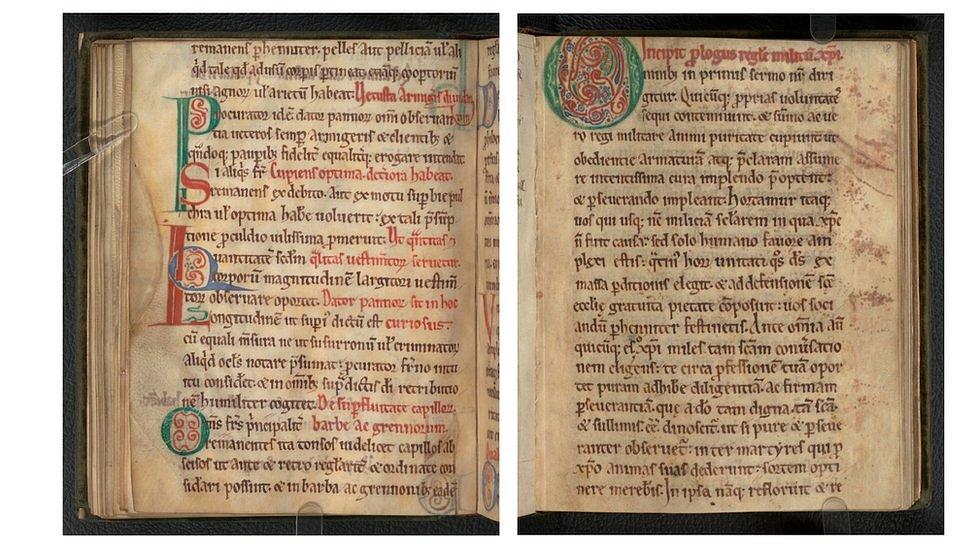 remanens phenniter. pelles Aut pelliciā ul ali
qd tale qd ad usū corpis ptineat cooptoriū
nisi agnor ul arietū habeat. Uetusta Armigis
Procurator dator pannor omī obseruan
tia ueteros semp armigeris & clientib; &
qndoq; paupib; fidelit equalitq; erogare intendat
Si aliqs fr Cupiens optima. deteriora habeat.
remanens ex debito. Aut ex motu supbie pul
chra ul optima habe uoluerit: ex tali psūp
tione pculdio uilissima pmeruit. Ut qntitas &
Quantitatē scdm qlitas uestimtor seruetur.
corporū magnitudinē largitorē uestim
tor obseruare oportet. Dator pannor sit in hoc
Longitudinē ut supi dictū est curiosus.
cū equali msura ne ut susurronū ul criminator
Aliqd ocls notare psumat: pcurator frno intu
itu consideret & in omib; supdictis di retributio
nē humiliter cogitet. De supfluitate capillor.
Omis frs pncipalit barbe ac grennorum.
remanentes ita tonsos uidelicet capillos ab
seisos ut ante & retro reglarit & ordinate con
siderari possint. & in barba ac grennonib; eadē
Incipit plogus regle militū xpi.
Omnib; in primis sermo nr diri
gitur. Quicūq; pprias uoluntates
sequi contemnunt. & sūmo ac ue
ro regi militare Animi puritate cupiunt ut
obedientie armaturā atq; pclaram assume
re intentissima cura implendo poptent:
& pseuerando impleant. Hortamur itaq;
uos qui usq; nc miliciā sclarem in qua xpc
n fuit causa: sed solo humano fauore am
plexi estis. qtin hor unitati qs ds ex
massa pditionis elegit. & ad defensionē scē
ecclie gratuita pietate cōposuit: uos soci
andū phenniter festinetis. Ante omia aū
quicūq; es xpi miles tam scam conuersatio
nem eligens. te circa pfessionē tuā opor
tet puram adhibe diligentiā. ac firmam
pseuerantiā. que a do tam digna. tā sca.
& sullimis. eē dinoscit. ut si pure & pseue
ranter obseruet: inter martyres qui p
xpo animas suas dederunt: sortem opti
nere merebis. In ipsa nāq; refloruit & re